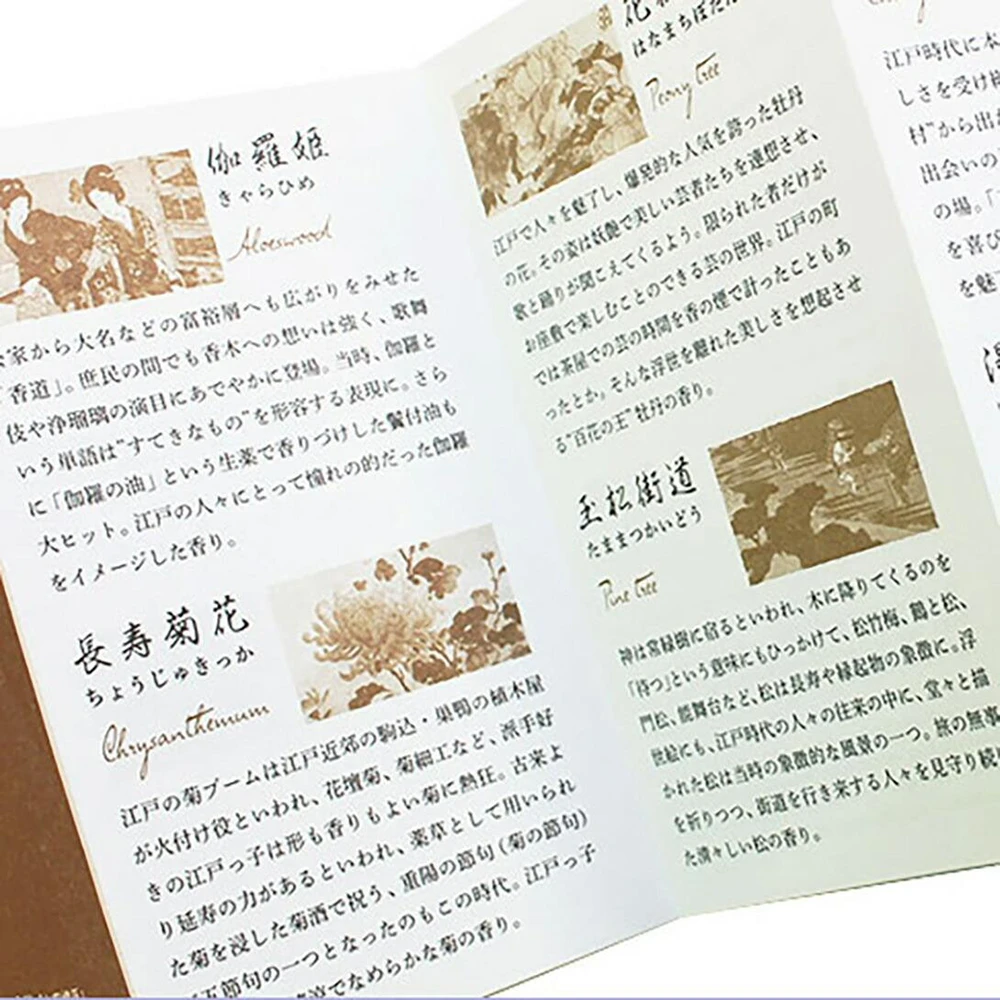 伽羅姫
きゃらひめ
Aloeswood
家から大名などの富裕層へも広がりをみせた
「香道」。庶民の間でも香木への想いは強く、歌舞
伎や浄瑠璃の演目にあでやかに登場。当時、伽羅と
いう単語は“すてきなもの”を形容する表現に。さら
に「伽羅の油」という生薬で香りづけした鬢付油も
大ヒット。江戸の人々にとって憧れの的だった伽羅
をイメージした香り。
長寿菊花
ちょうじゅきっか
Chrysanthemum
江戸の菊ブームは江戸近郊の駒込・巣鴨の植木屋
が火付け役といわれ、花壇菊、菊細工など、派手好
きの江戸っ子は形も香りもよい菊に熱狂。古来よ
り延寿の力があるといわれ、薬草として用いられ
た菊を浸した菊酒で祝う、重陽の節句(菊の節句)
五節句の一つとなったのもこの時代。江戸っ子
でなめらかな菊の香り。
はなまちぼたん
Peony tree
江戸で人々を魅了し、爆発的な人気を誇った牡丹
の花。その姿は妖艶で美しい芸者たちを連想させ、
歌と踊りが聞こえてくるよう。限られた者だけが
お座敷で楽しむことのできる芸の世界。江戸の町
では茶屋での芸の時間を香の煙で計ったこともあ
ったとか。そんな浮世を離れた美しさを想起させ
る“百花の王”牡丹の香り。
玉松街道
たままつかいどう
Pine tree
神は常緑樹に宿るといわれ、木に降りてくるのを
「待つ」という意味にもひっかけて、松竹梅、鶴と松、
門松、能舞台など、松は長寿や縁起物の象徴に。浮
世絵にも、江戸時代の人々の往来の中に、堂々と描
かれた松は当時の象徴的な風景の一つ。旅の無事
を祈りつつ、街道を行き来する人々を見守り続
た清々しい松の香り。
江戸時代に
しさを受け
村”から出
出会いの
の場。「
を喜び
を魅